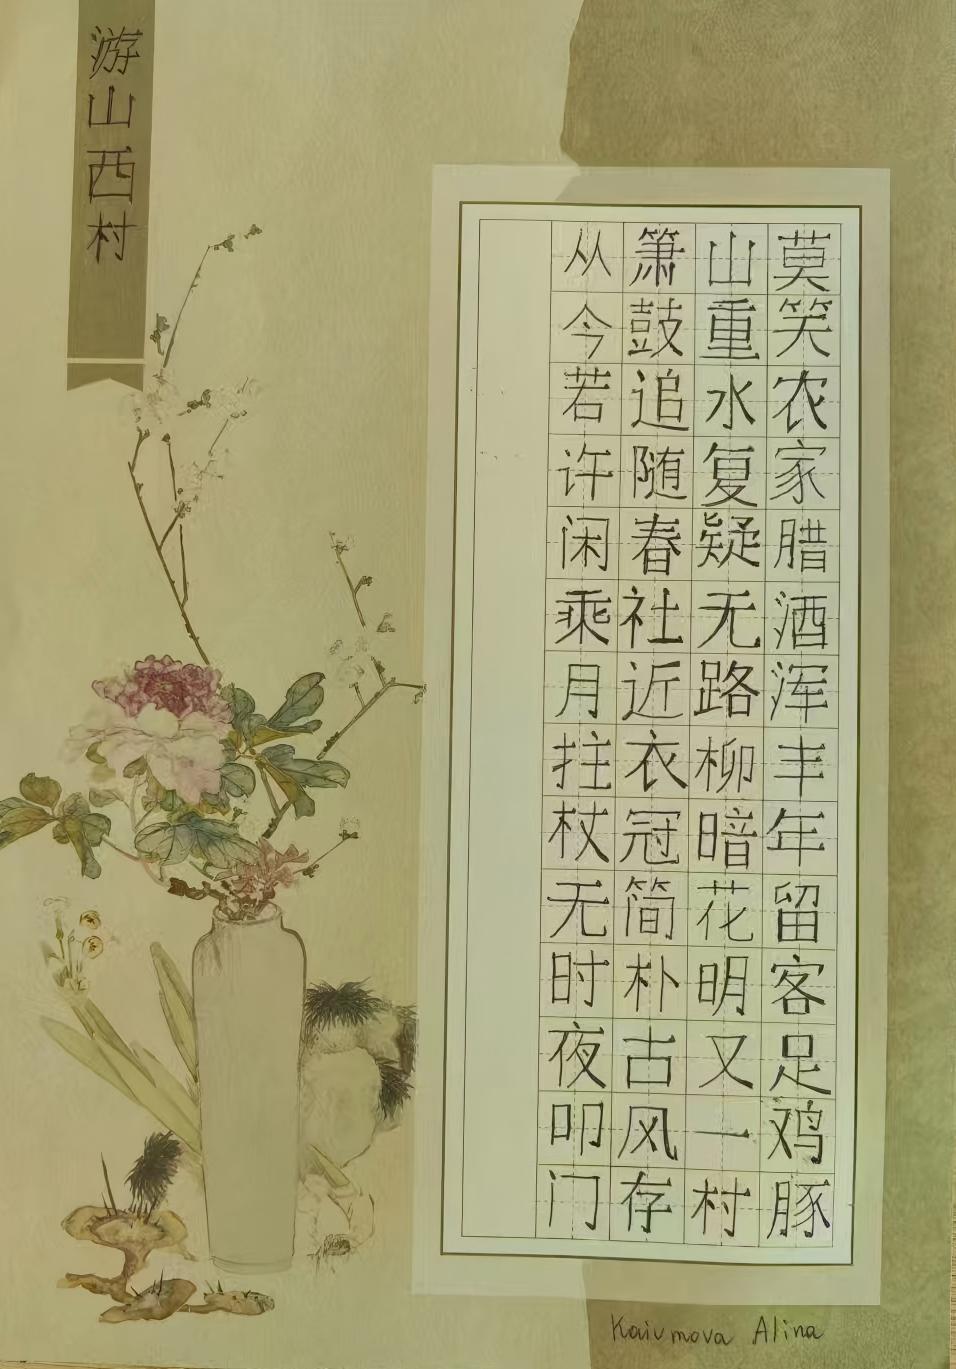 游山西村
莫笑农家腊酒浑丰年留客足鸡豚
山重水复疑无路柳暗花明又一村
箫鼓追随春社近衣冠简朴古风存
从今若许闲乘月拄杖无时夜叩门
Kaiumova Alina